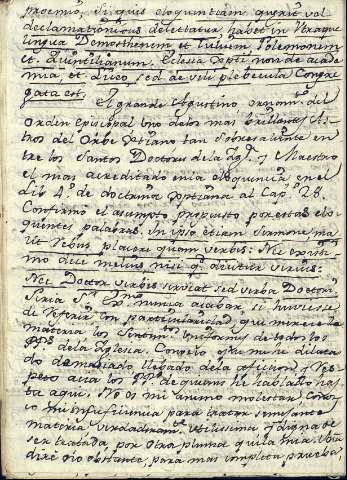 proemio, si quis eloquentiam quærit vel
declamationibus delectatur, habet in utraque
lingua Demosthenem et Tulium, Polemonem
et Quintilianum. Eclesia Xpti non de acade
mia, et Liceo, sed de vili plebecula Congre
gata est.
El grande Agustino ornam.to del
orden Episcopal uno delos mas brillantes As
tros del Orbe Xptiano tan sobresaliente en
tre los Santos Doctores dela Ygl.a y Maestro
el mas acreditado enla eloquencia en el
lib. 4.o de doctrina Xptiana al Cap.o 28.
Confirmó el asumpto propuesto por estas elo
quentes palabras. In ipso etiam Sermone ma
lit rebus placere quam verbis: Nec existi
mo dici melius nisi q.d dicitur verius:
Nec Doctor verbis serviat sed verba Doctori
Seria S.r nunca acabar, si huviesse
de referir con particularidad, que merece la
materia los Sentim.tos Uniformes de todos los
PP.s dela Iglesia. Conosco q.e me he dilata
do demasiado llebado dela aficion, y res
peto acia los de quienes he hablado has
ta aqui. No es mi animo molestar, conos
co mi insuficiencia para tratar semejante
materia verdaderam.te utilissima y digna de
ser tratada por otra pluma que la mia.
diré no obstante, para mas completa prueba,